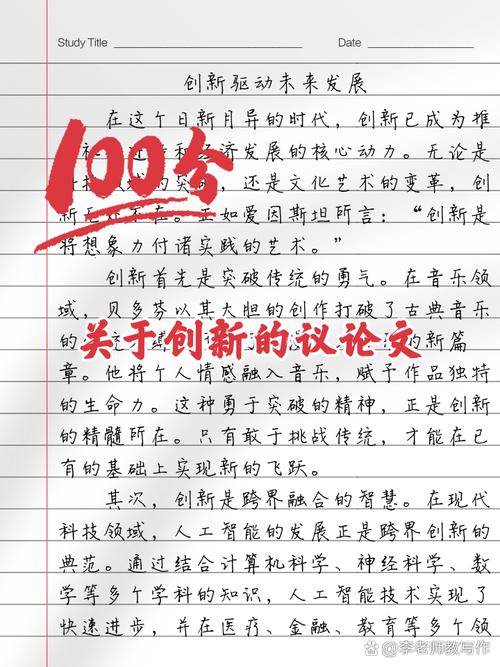 Study Title
Date
创新驱动未来发展
在这个日新月异的时代，创新已成为推
100分
发展的核心动力。无论是
还是文化艺术的变革，创
新无处不在。正如爱因斯坦所言：“创新是
将想象力付诸实践的艺术。”
创新首先是突破传统的勇气。在音乐领
域，贝多芬以其大胆的创作打破了古典音乐
的
关于创新的议论文
的新篇
章。他将个人情感融入音乐，赋予作品独特
的生命力。这种勇于突破的精神，正是创新
的精髓所在。只有敢于挑战传统，才能在已
有的基础上实现新的飞跃。
其次，创新是跨界融合的智慧。在现代
科技领域，人工智能的发展正是跨界创新的
典范。通过结合计算机科学、神经科学、数
学等多个学科的知识，人工智能技术实现了
快速进步，并在医疗、金融、教育等多个领
@李老师教写作